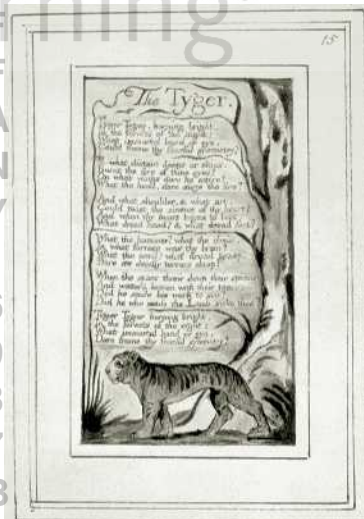 15
The Tyger.
Tyger Tyger, burning bright,
In the forests of the night;
What immortal hand or eye,
Could frame thy fearful symmetry?
In what distant deeps or skies,
Burnt the fire of thine eyes?
On what wings dare he aspire?
What the hand, dare sieze the fire?
And what shoulder, & what art,
Could twist the sinews of thy heart?
And when thy heart began to beat,
What dread hand? & what dread feet?
What the hammer? what the chain,
In what furnace was thy brain?
What the anvil? what dread grasp,
Dare its deadly terrors clasp?
When the stars threw down their spears
And water'd heaven with their tears:
Did he smile his work to see?
Did he who made the Lamb make thee?
Tyger Tyger burning bright,
In the forests of the night:
What immortal hand or eye,
Dare frame thy fearful symmetry?